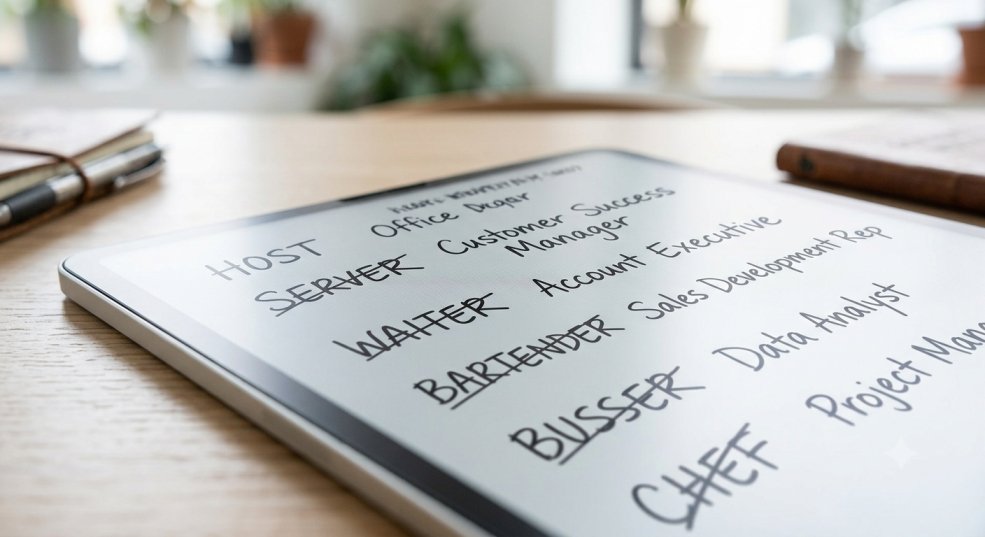 HOST Office Degar
SERVER Customer Success
Manager
WAITER Account Executive
BARTENDER Sales Development Rep
BUSSER Data Analyst
CHEF Project Mana